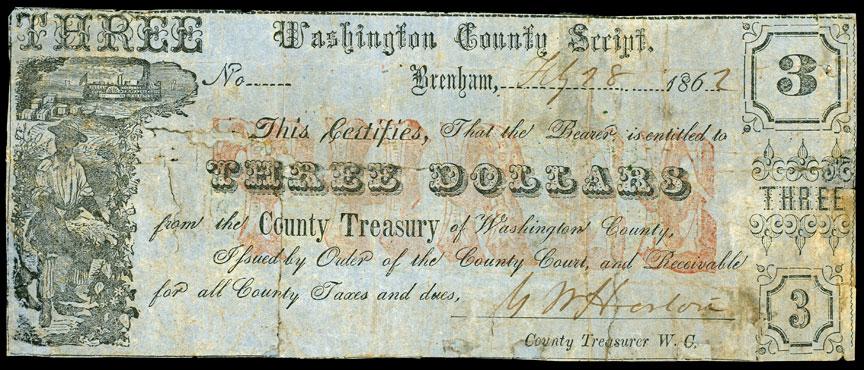 THREE
Washington County Script.
3
No
Brenham, 28 1862
This Certifies, That the Bearer is entitled to
THREE DOLLARS
THREE
from the County Treasury of Washington County,
Issued by Order of the County Court, and Receivable
for all County Taxes and dues,
3
County Treasurer W. C.